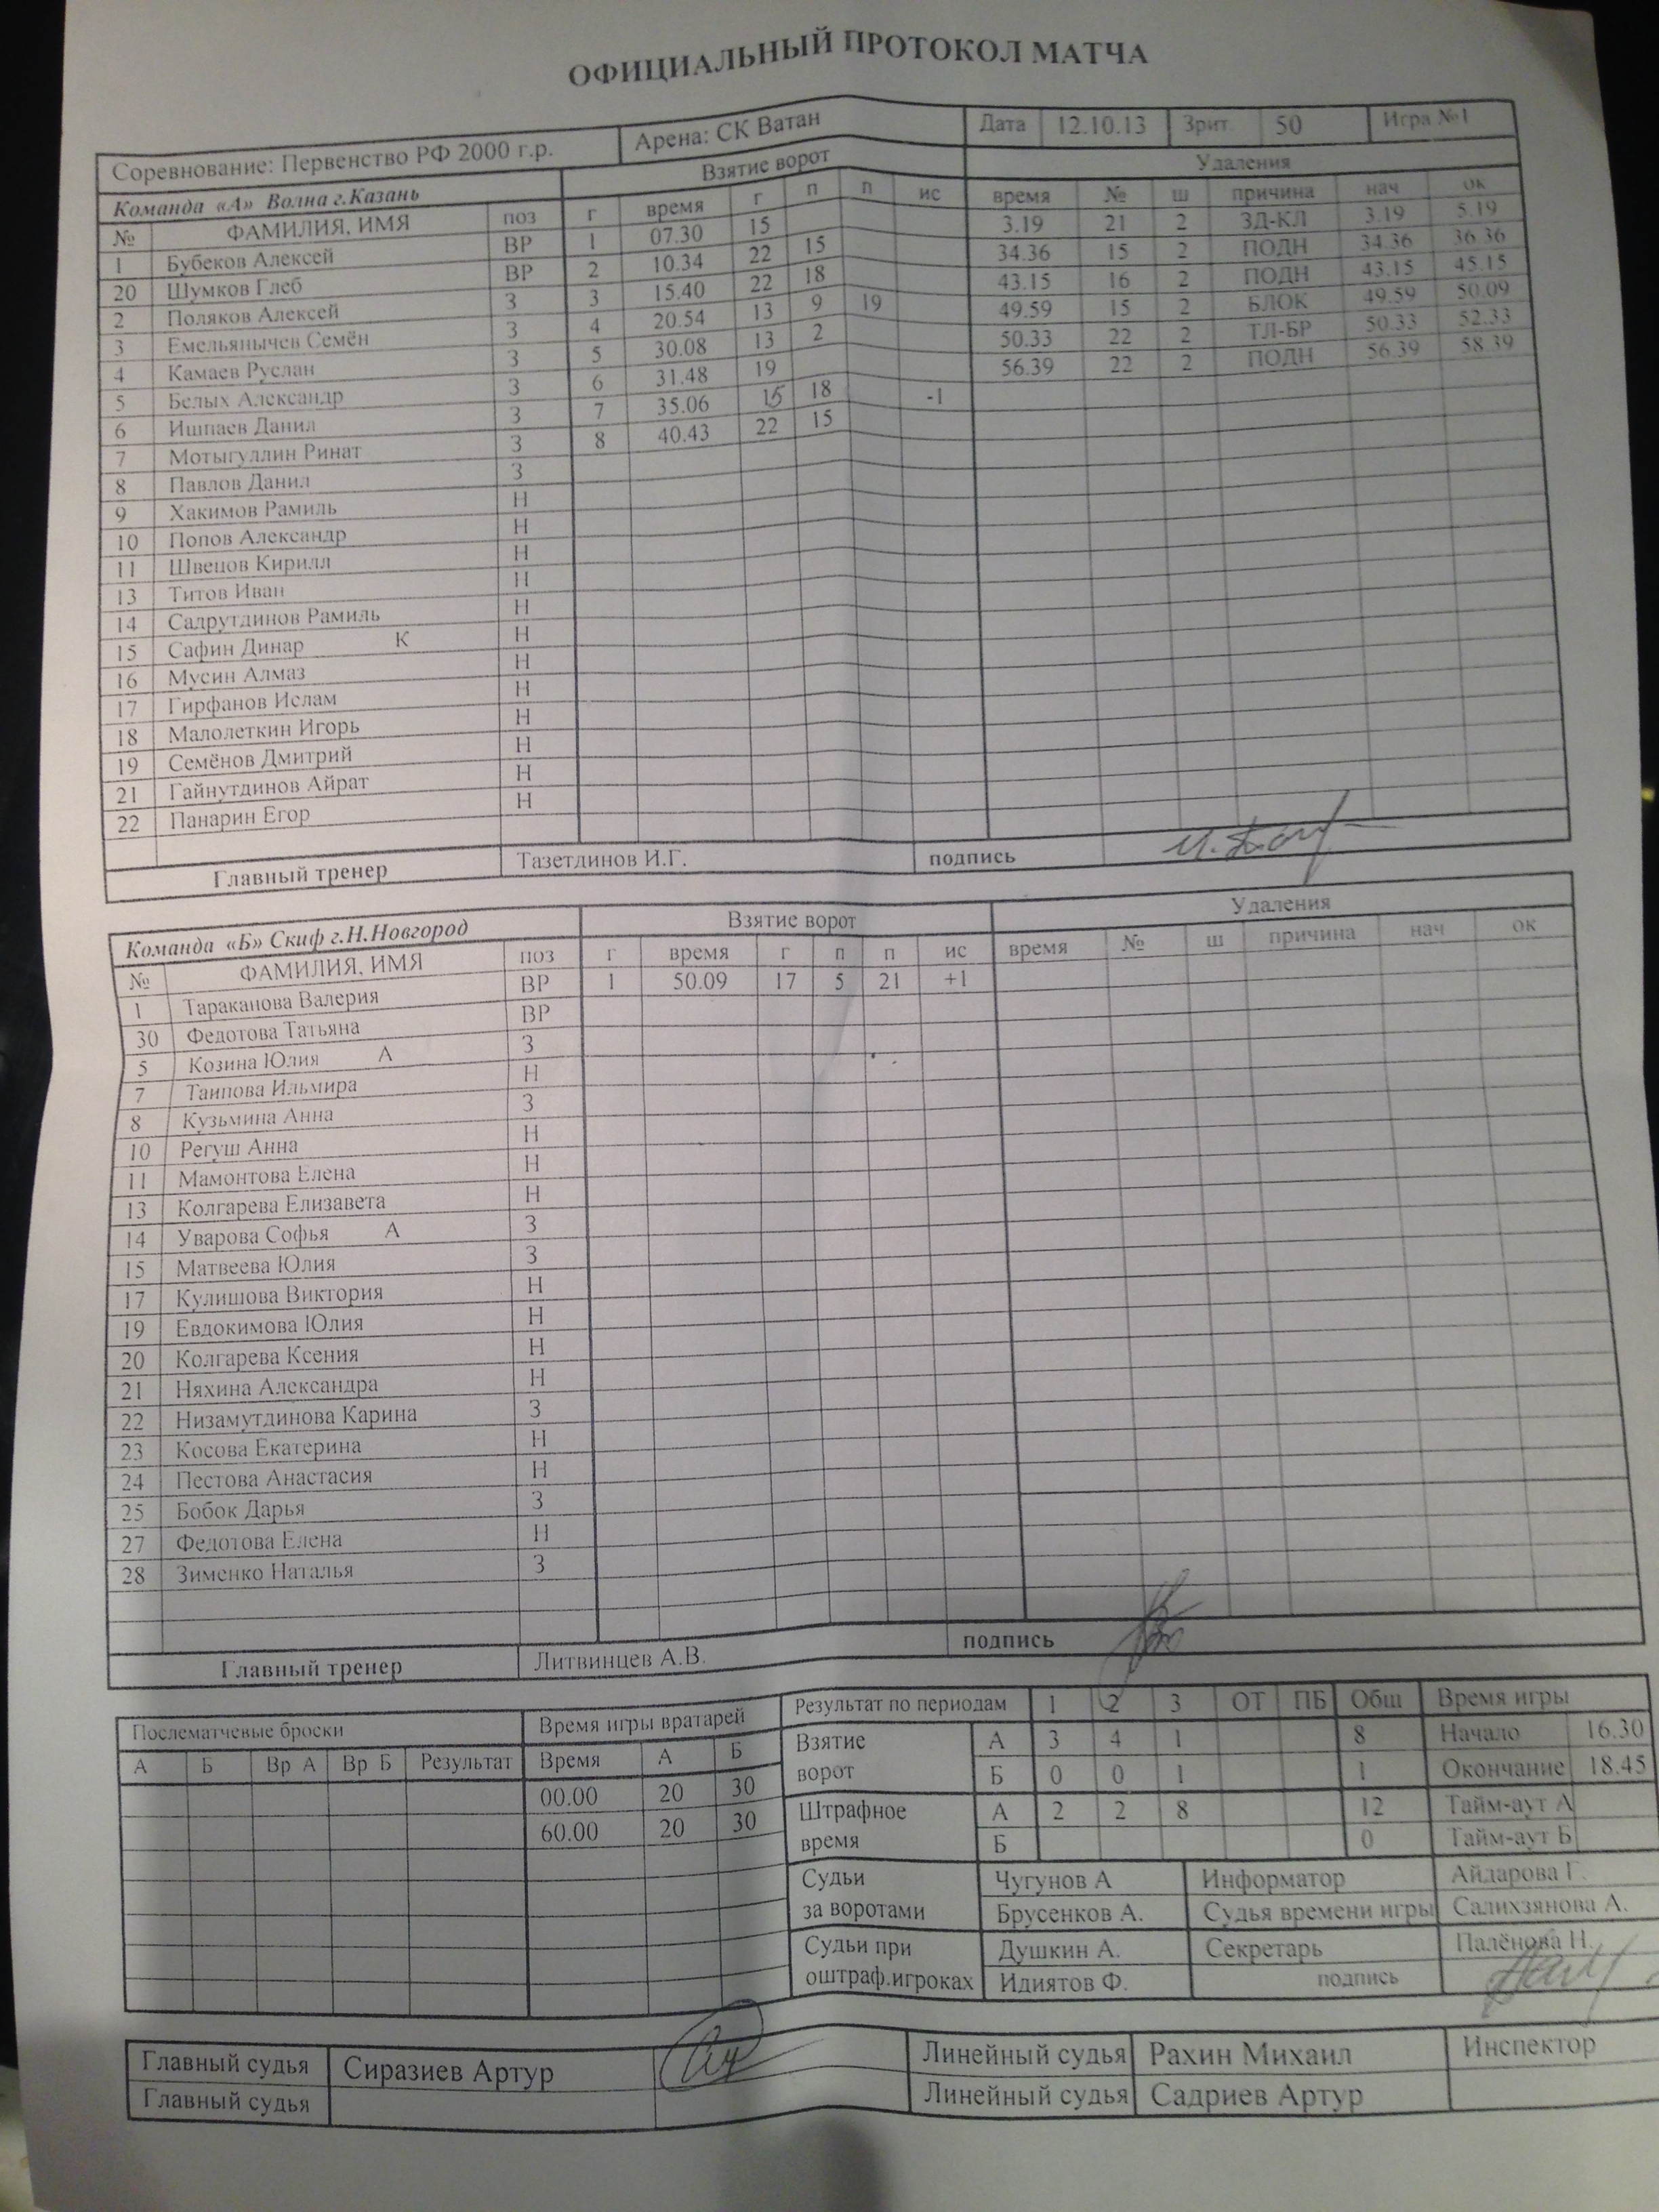 ОФИЦИАЛЬНЫЙ ПРОТОКОЛ МАТЧА
Соревнование: Первенство РФ 2000 г.р. Арена: СК Ватан Дата 12.10.13 Зрит. 50 Игра №1
Команда «А» Волна г.Казань Взятие ворот Удаления
№ ФАМИЛИЯ, ИМЯ поз г время г п п ис время № ш причина нач ок
1 Бубеков Алексей ВР 1 07.30 15 3.19 21 2 ЗД-КЛ 3.19 5.19
20 Шумков Глеб ВР 2 10.34 22 15 34.36 15 2 ПОДН 34.36 36.36
2 Поляков Алексей З 3 15.40 22 18 43.15 16 2 ПОДН 43.15 45.15
3 Емельянычев Семён З 4 20.54 13 9 19 49.59 15 2 БЛОК 49.59 50.09
4 Камаев Руслан З 5 30.08 13 2 50.33 22 2 ТЛ-БР 50.33 52.33
5 Белых Александр З 6 31.48 19 56.39 22 2 ПОДН 56.39 58.39
6 Ишпаев Данил З 7 35.06 15 18 -1
7 Мотыгуллин Ринат З 8 40.43 22 15
8 Павлов Данил З
9 Хакимов Рамиль Н
10 Попов Александр Н
11 Швецов Кирилл Н
13 Титов Иван Н
14 Садрутдинов Рамиль Н
15 Сафин Динар К Н
16 Мусин Алмаз Н
17 Гирфанов Ислам Н
18 Малолеткин Игорь Н
19 Семёнов Дмитрий Н
21 Гайнутдинов Айрат Н
22 Панарин Егор Н
Главный тренер Тазетдинов И.Г. подпись
Команда «Б» Скиф г.Н.Новгород Взятие ворот Удаления
№ ФАМИЛИЯ, ИМЯ поз г время г п п ис время № ш причина нач ок
1 Тараканова Валерия ВР 1 50.09 17 5 21 +1
30 Федотова Татьяна ВР
5 Козина Юлия А З
7 Таипова Ильмира Н
8 Кузьмина Анна З
10 Регуш Анна Н
11 Мамонтова Елена Н
13 Колгарева Елизавета Н
14 Уварова Софья А З
15 Матвеева Юлия З
17 Кулишова Виктория Н
19 Евдокимова Юлия Н
20 Колгарева Ксения Н
21 Няхина Александра Н
22 Низамутдинова Карина З
23 Косова Екатерина Н
24 Пестова Анастасия Н
25 Бобок Дарья З
27 Федотова Елена Н
28 Зименко Наталья З
Главный тренер Литвинцев А.В. подпись
Послематчевые броски Время игры вратарей Результат по периодам 1 2 3 ОТ ПБ Общ Время игры
А Б Вр А Вр Б Результат Время А Б Взятие ворот А 3 4 1 8 Начало 16.30
00.00 20 30 Б 0 0 1 1 Окончание 18.45
60.00 20 30 Штрафное время А 2 2 8 12 Тайм-аут А
Б 0 Тайм-аут Б
Судьи за воротами Чугунов А Информатор Айдарова Г.
Брусенков А. Судья времени игры Салихзянова А.
Судьи при оштраф.игроках Душкин А. Секретарь Палёнова Н.
Идиятов Ф. подпись
Главный судья Сиразиев Артур Линейный судья Рахин Михаил Инспектор
Главный судья Линейный судья Садриев Артур